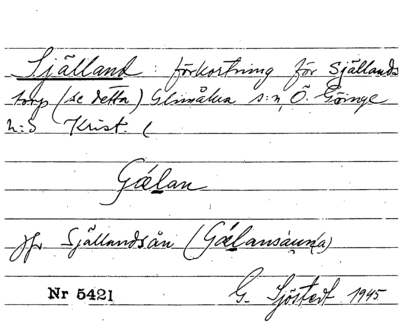 Själland : förkortning för Själlands
torp (se detta) Glimåkra s:n, Ö. Göinge
h:d Krist. (
Gälan
jfr Själlandsån (Gälansåun(a)
Nr 5421 G. Sjöstedt 1945